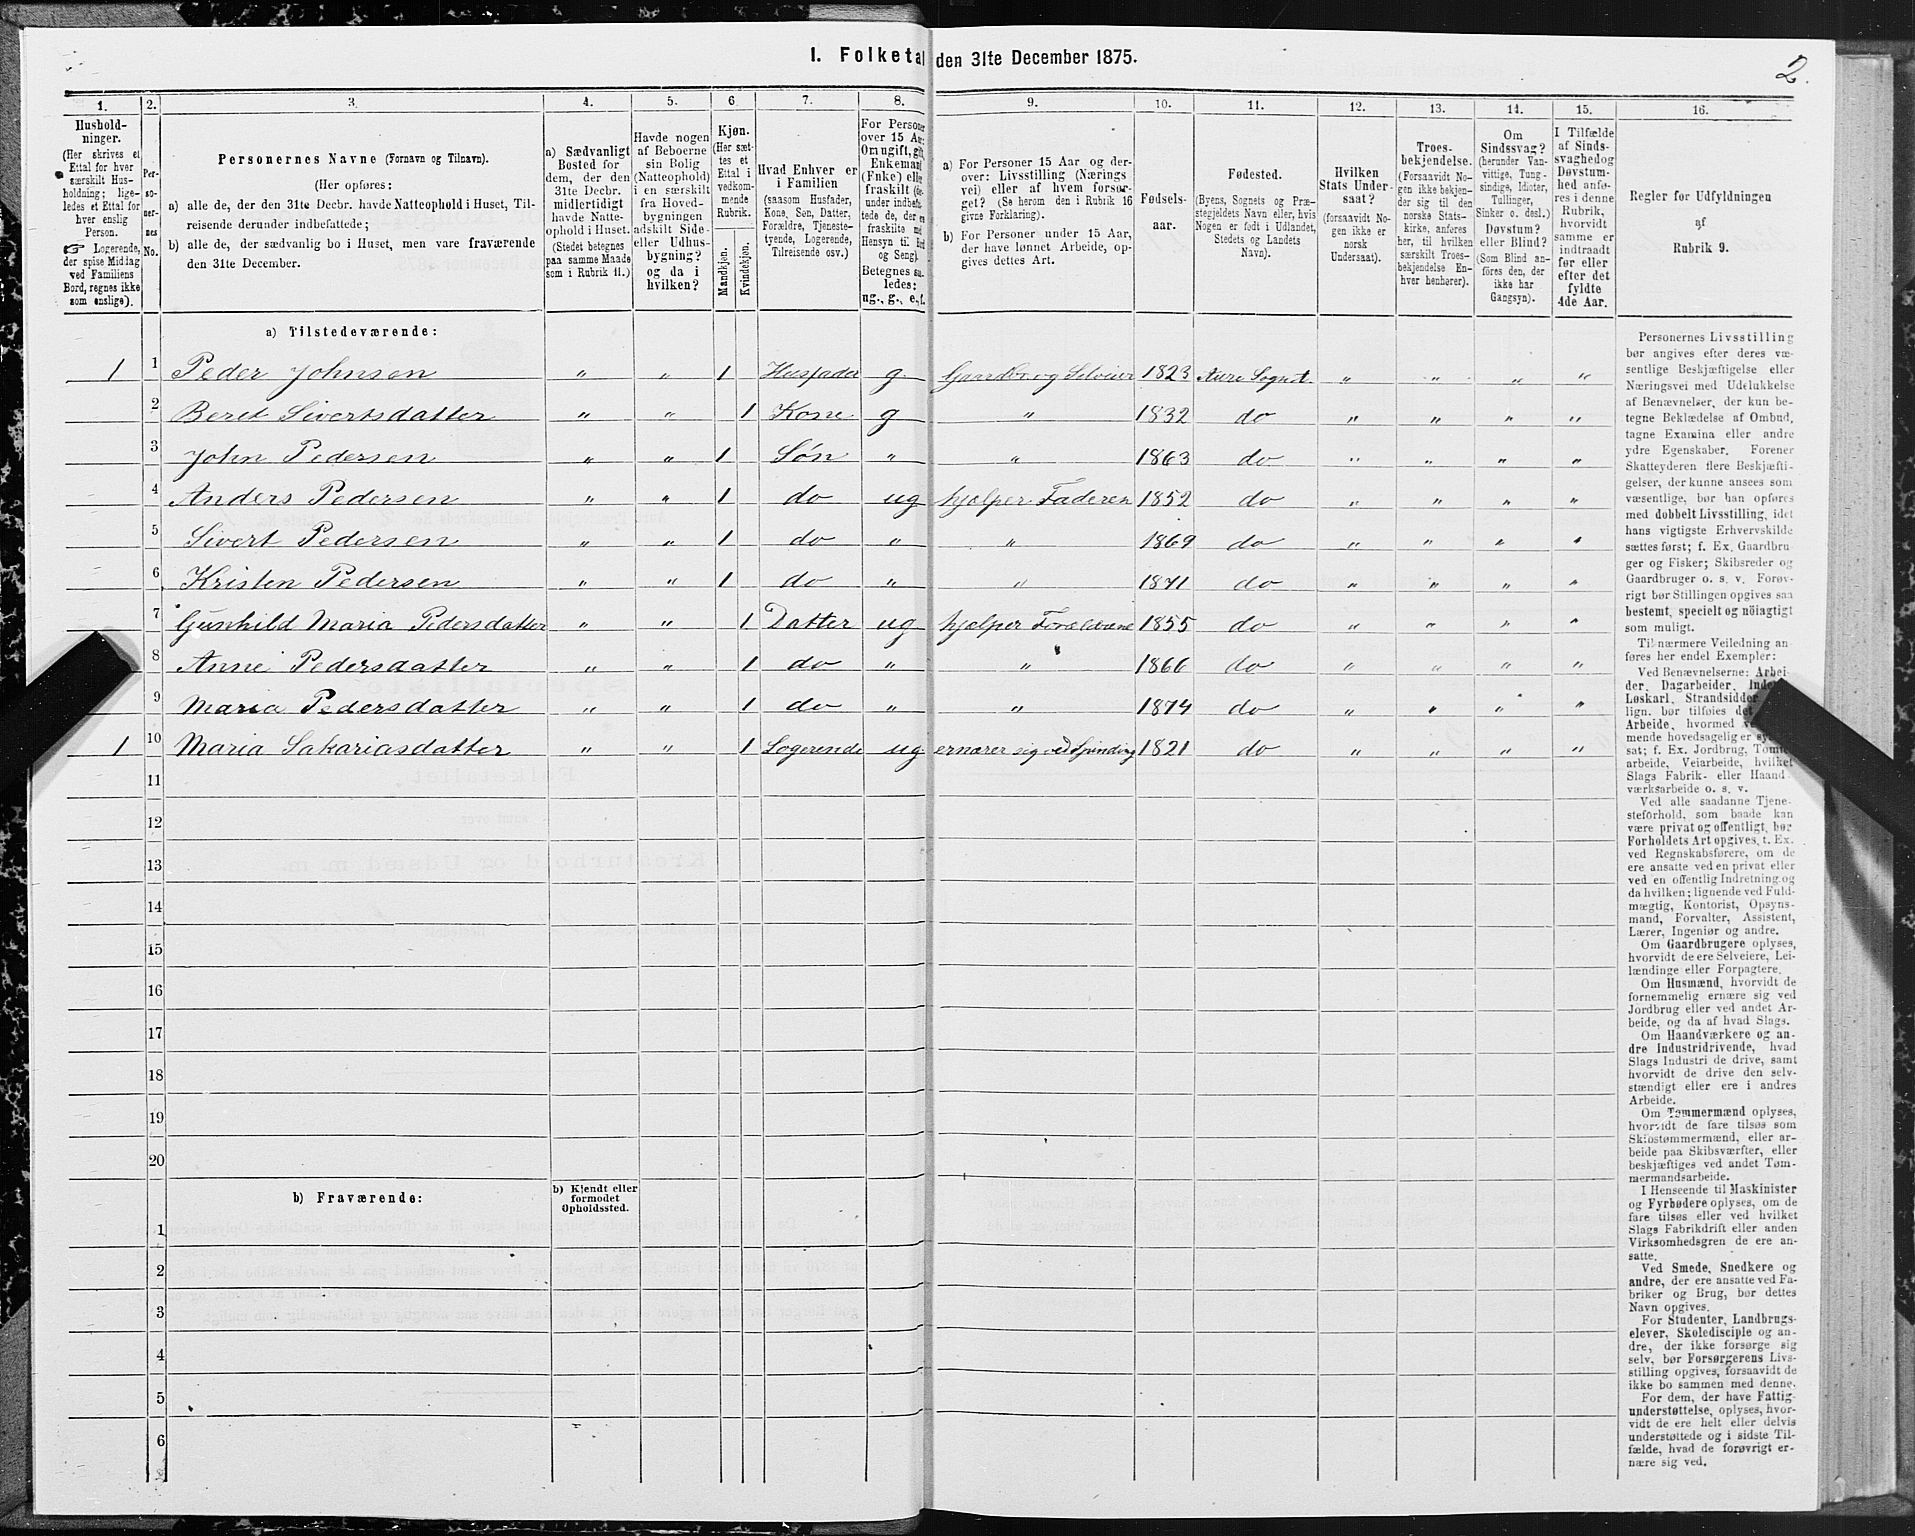 I. Folketal den 31te December 1875.
2.
1. 2. 3. 4. 5. 6. 7. 8. 9. 10. 11. 12. 13. 14. 15. 16.
Hushold-
ninger.
(Her skrives et
Ettal for hver
særskilt Hus-
holdning; lige-
ledes et Ettal for
hver enslig
Person.
☞ Logerende,
der spise Middag
ved Familiens
Bord, regnes ikke
som enslige).
Per-
so-
ner-
nes
No.
Personernes Navne (Fornavn og Tilnavn).
(Her opføres:
a) alle de, der den 31te Decbr. havde Natteophold i Huset, Til-
reisende derunder indbefattede;
b) alle de, der sædvanlig bo i Huset, men vare fraværende
den 31te December.
a) Sædvanligt
Bosted for
dem, der den
31te Decbr.
midlertidigt
havde Natte-
ophold i Huset.
(Stedet betegnes
paa samme Maade
som i Rubrik 11.)
Havde nogen
af Beboerne
sin Bolig
(Natteophold)
i en særskilt
fra Hoved-
bygningen
adskilt Side-
eller Udhus-
bygning?
og da i
hvilken?
Kjøn.
(Her sæt-
tes et
Ettal i
vedkom-
mende
Rubrik.
Mandkjøn.
Kvindekjøn.
Hvad Enhver er
i Familien
(saasom Husfader,
Kone, Søn, Datter,
Forældre, Tjeneste-
tyende, Logerende,
Tilreisende osv.)
For Personer
over 15 Aar:
Om ugift, gift,
Enkemand
(Enke) eller
fraskilt
Betegnes saa-
ledes:
ug., g., e., f.
a) For Personer 15 Aar og der-
over: Livsstilling (Nærings-
vei) eller af hvem forsør-
get? (Se herom den i Rubrik 16
givne Forklaring).
b) For Personer under 15 Aar,
der have lønnet Arbeide, op-
gives dettes Art.
Fødsels-
aar.
Fødested.
(Byens, Sognets og Præ-
stegjeldets Navn eller, hvis
Nogen er født i Udlandet,
Stedets og Landets
Navn).
Hvilken
Stats Under-
saat?
(forsaavidt No-
gen ikke er
norsk
Undersaat).
Troes-
bekjendelse.
(Forsaavidt No-
gen ikke bekjen-
der sig til den
norske Stats-
kirke, anføres
her, til hvilken
særskilt Troes-
bekjendelse En-
hver henhører).
Om
Sindssvag?
(herunder Van-
vittige, Tung-
sindige, Idioter,
Tullinger,
Sinker o. desl.)
Døvstum?
eller Blind?
(Som Blind an-
føres den, der
ikke har
Gangsyn).
I Tilfælde
af Sinds-
svaghed og
Døvstum-
hed anfø-
res i denne
Rubrik,
hvorvidt
samme er
indtraadt
før eller
efter det
fyldte
4de Aar.
Regler for Udfyldningen
af
Rubrik 9.
a) Tilstedeværende:
1 1 Peder Johnsen " " 1 Husfader g Gaardbr og Selveier 1823 Aure Sogn " " " "
2 Beret Sivertsdatter " " 1 Kone g " 1832 do " " " "
3 John Pedersen " " 1 Søn " " 1863 do " " " "
4 Anders Pedersen " " 1 do ug hjælper Faderen 1852 do " " " "
5 Sivert Pedersen " " 1 do " " 1869 do " " " "
6 Kristen Pedersen " " 1 do " " 1871 do " " " "
7 Gunhild Maria Pedersdatter " " 1 Datter ug hjælper Forældrene 1855 do " " " "
8 Anne Pedersdatter " " 1 do " " 1866 do " " " "
9 Maria Pedersdatter " " 1 do " " 1874 do " " " "
1 10 Maria Sakariasdatter " " 1 Logerende ug ernærer sig ved Spinding 1821 do " " " "
11
12
13
14
15
16
17
18
19
20
b) Fraværende:
b) Kjendt eller
formodet
Opholdssted.
1
2
3
4
5
6
Personernes Livsstilling
bør angives efter deres væ-
sentlige Beskjæftigelse eller
Næringsvei med Udelukkelse
af Benævnelser, der kun be-
tegne Beklædelse af Ombud,
tagne Examina eller andre
ydre Egenskaber. Forener
Skatteyderen flere Beskjæfti-
gelser, der kunne ansees som
væsentlige, bør han opføres
med dobbelt Livsstilling, idet
hans vigtigste Erhvervskilde
sættes først; f. Ex. Gaardbru-
ger og Fisker; Skibsreder og
Gaardbruger o. s. v. Forøv-
rigt bør Stillingen opgives saa
bestemt, specielt og nöiagtigt
som muligt.
Til nærmere Veiledning an-
føres her endel Exempler:
Ved Benævnelserne: Arbei-
der, Dagarbeider,
Løskarl, Strandsidder
lign. bør tilføies
Arbeide, hvormed
mende hovedsagelig er
sat; f. Ex. Jordbrug, Tomte-
arbeide, Veiarbeide, hvilket
Slags Fabrik- eller Haand-
værksarbeide o. s. v.
Ved alle saadanne Tjene-
steforhold, som baade kan
være privat og offentligt, bør
Forholdets Art opgives, t. Ex.
ved Regnskabsførere, om de
ere ansatte ved en privat eller
ved en offentlig Indretning og
da hvilken; lignende ved Fuld-
mægtig, Kontorist, Opsyns-
mand, Forvalter, Assistent,
Lærer, Ingeniør og andre.
Om Gaardbrugere oplyses,
hvorvidt de ere Selveiere, Lei-
lændinge eller Forpagtere.
Om Husmænd, hvorvidt de
fornemmelig ernære sig ved
Jordbrug eller ved andet Ar-
beide, og da af hvad Slags.
Om Haandværkere og an-
dre Industridrivende, hvad
Slags Industri de drive, samt
hvorvidt de drive den selv-
stændigt eller ere i andres
Arbeide.
Om Tømmermænd oplyses,
hvorvidt de fare tilsøs som
Skibstømmermænd, eller ar-
beide paa Skibsværfter, eller
beskjæftiges ved andet Tøm-
mermandsarbeide.
I Henseende til Maskinister
og Fyrbødere oplyses, om de
fare tilsøs eller ved hvilket
Slags Fabrikdrift eller anden
Virksomhedsgren de ere an-
satte.
Ved Smede, Snedkere og
andre, der ere ansatte ved Fa-
briker og Brug, bør dettes
Navn opgives.
For Studenter, Landbrugs-
elever, Skoledisciple og an-
dre, der ikke forsørge sig
selv, bør Forsørgerens Livs-
stilling opgives, forsaavidt de
ikke bo sammen med denne.
For dem, der have Fattig-
understøttelse, oplyses, hvor-
vidt de ere helt eller delvis
understøttede og i sidste Til-
fælde, hvad de forøvrigt er-
nære sig ved.